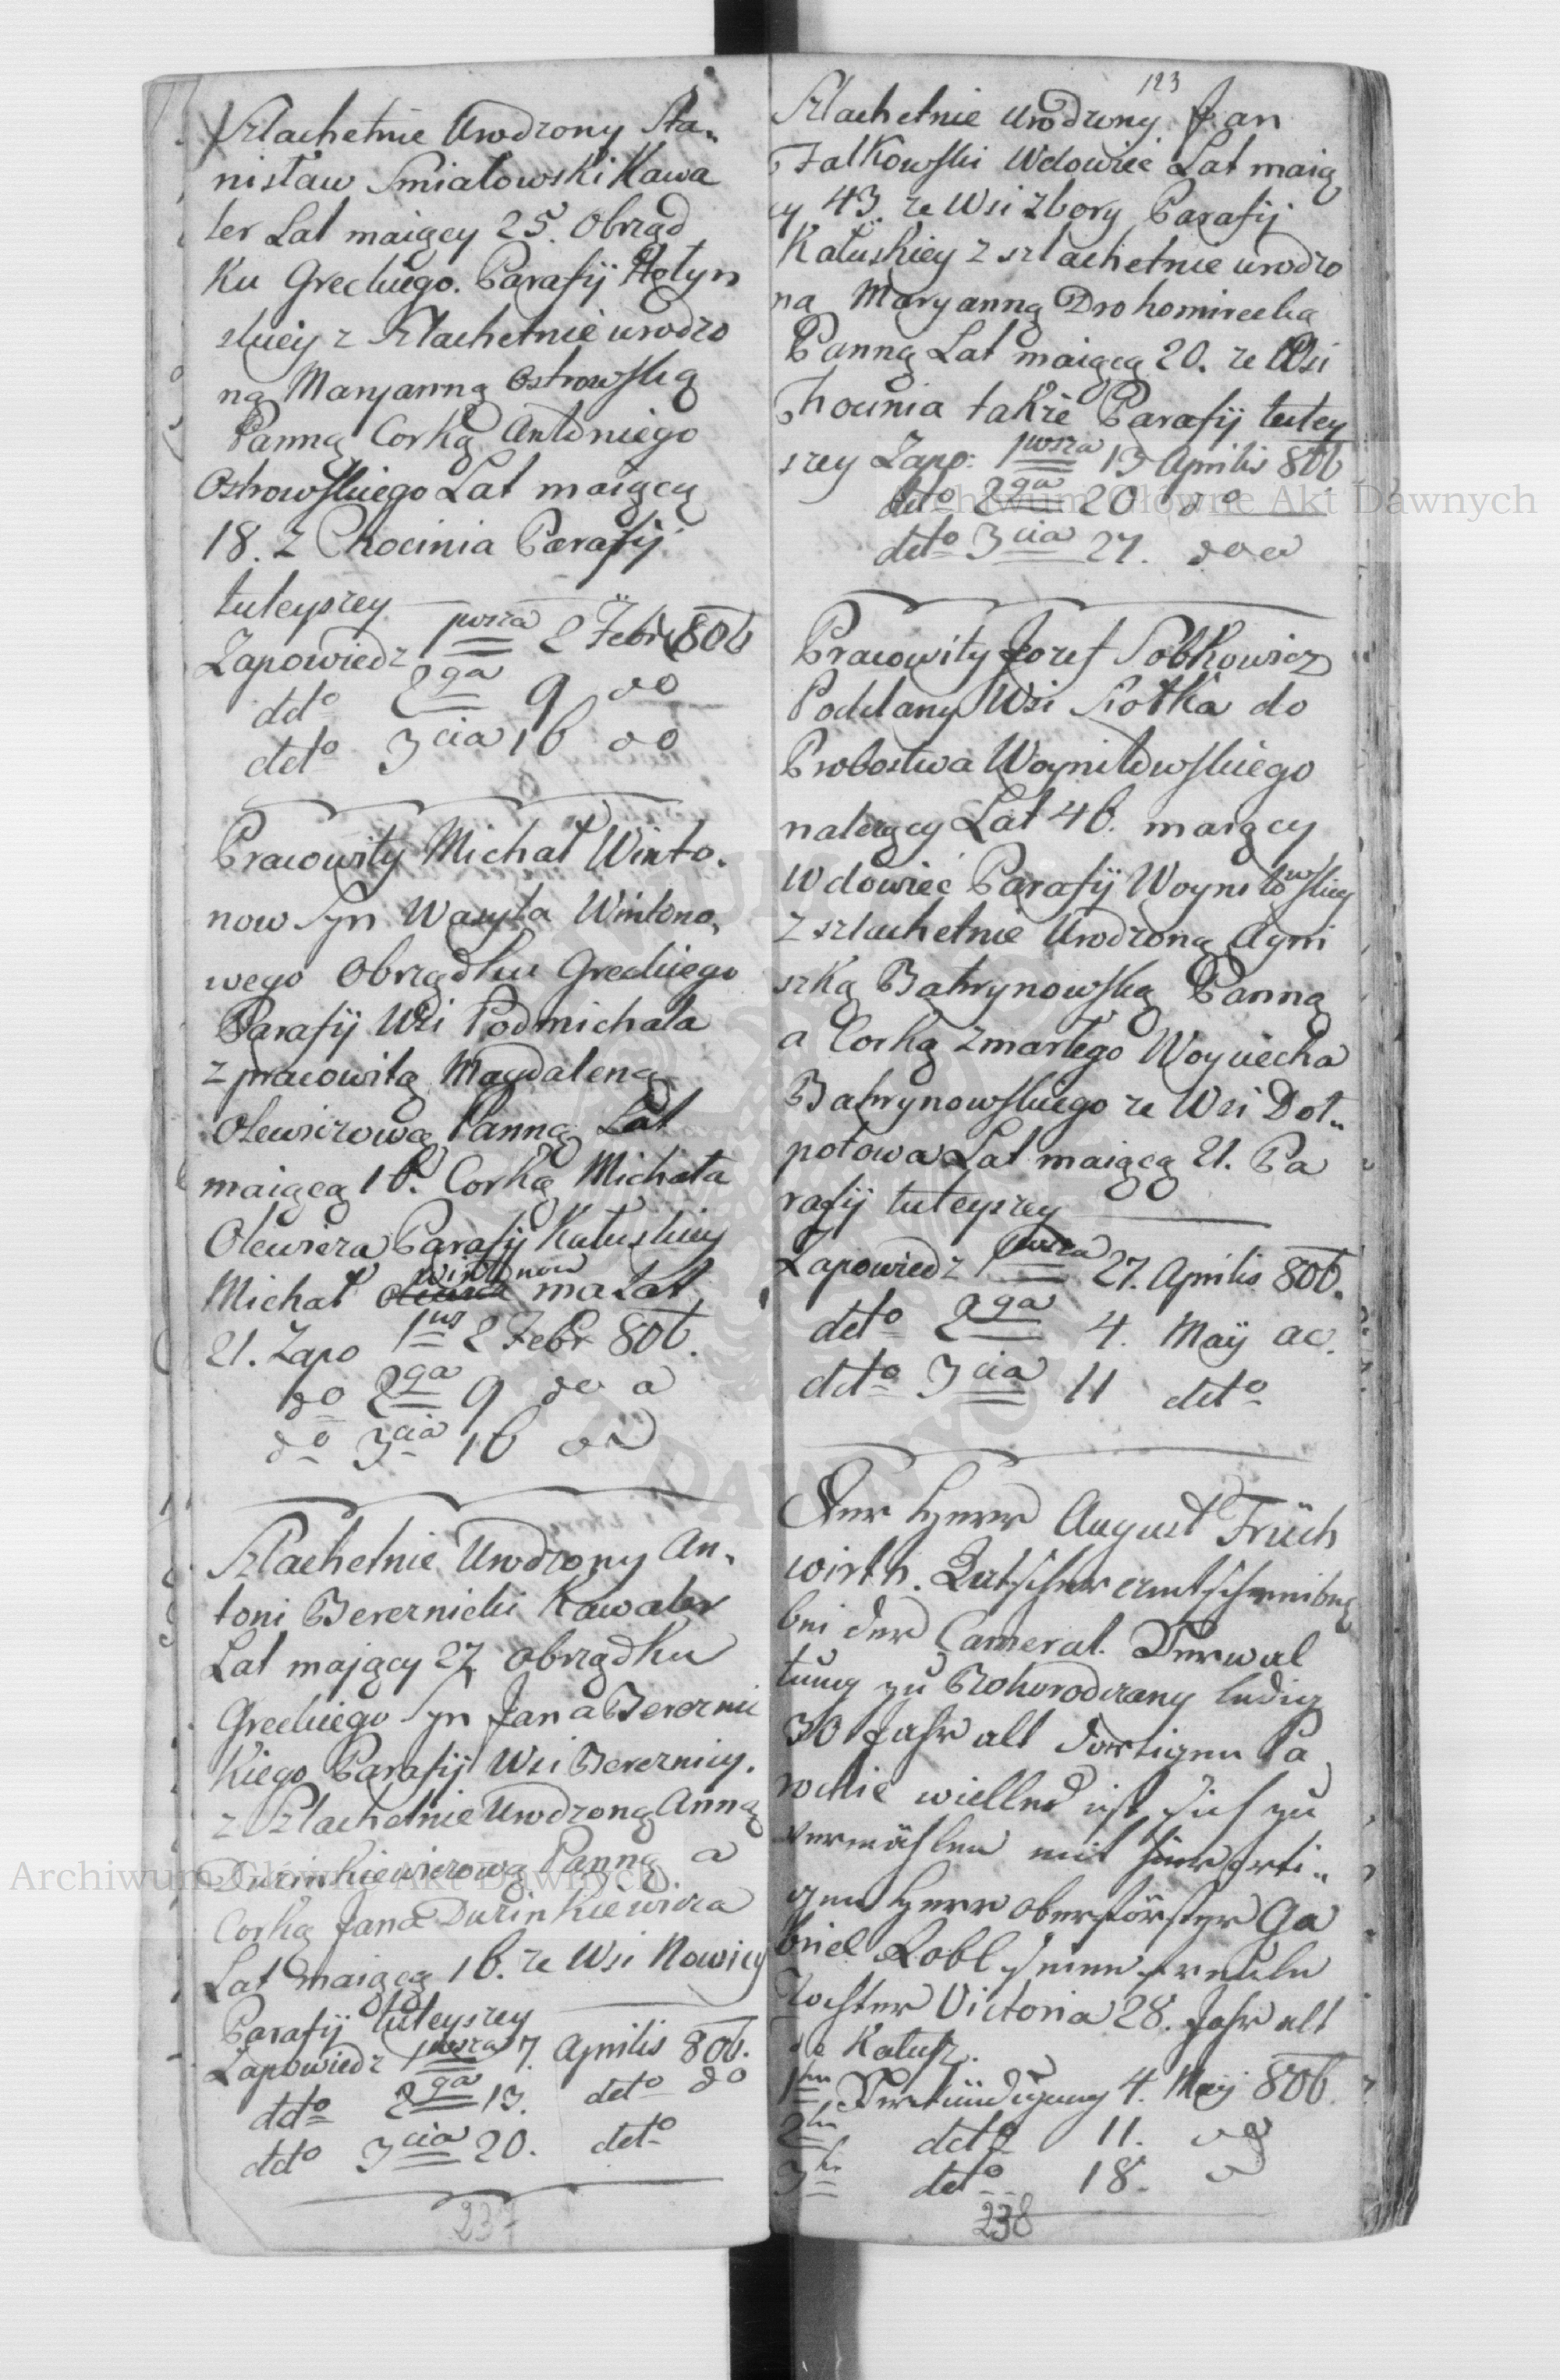 Szlachetnie Urodzony Sta„
nisław Smiałowski Kawa
ler Lat maiący 25. Obrząd
ku Greckiego. Parafij Hołyn
skiey z Szlachetnie urodzo
ną Maryanną Ostrowską
Panną Corką Antoniego
Ostrowskiego Lat maiącą
18. z Chocinia Parafij
tuteyszey
Zapowiedz 1wsza 2 Febr 806
detto 2ga 9 do
detto 3cia 16 do
Pracowity Michał Winto„
now Syn Wasyla Wintono„
wego Obrządku Greckiego
Parafij Wsi Podmichala
z pracowitą Magdaleną
Olewiczową Panną Lat
maiącą 16. Corką Michała
Olewicza Parafij Kałuskiey
Michał Wintonow ma Lat
21. Zapo 1ws 2 Febr 806.
do 2ga 9 do a
do 3cia 16
Szlachetnie Urodzony An„
toni Berernicki Kawaler
Lat mający 27. Obrządku
Greckiego Syn Jana Berernic
kiego Parafij Wsi Berernicy.
z Szlachetnie Urodzoną Anną
Durinkiewiczową Panną a
Corką Jana Durinkiewicza
Lat maiącą 16. ze Wsi Nowicy
Parafij tuteyszey
Zapowiedz 1wsza 7. Aprilis 806.
detto 2ga 13. detto do
detto 3cia 20. detto
237
123
Szlachetnie urodzony Jan
Falkowski Wdowiec Lat maią
cy 43. ze Wsi zbory Parafij
Kałuskiey z szlachetnie urodzo
na Maryanną Drohomirecką
Panną Lat maiącą 20. ze Wsi
Chocinia także Parafij tutey
szey Zapo: 1wsza 13 Aprilis 806
detto 2ga 20 do
detto 3cia 27. do a
Pracowity Jozef Sobkowicz
Poddany Wsi Siolka do
Probostwa Woyniłowskiego
należący Lat 46. maiący
Wdowiec Parafij Woyniłowskiey
z szlachetnie Urodzoną Agni
szką Bahrynowską Panną
a Corką zmarłego Woyciecha
Bahrynowskiego ze Wsi Doł„
połowa Lat maiącą 21. Pa
rafij tuteyszey
Zapowiedz 1wsza 27. Aprilis 806.
detto 2ga 4. Maÿ ac.
detto 3cia 11 detto
Der Herr August Früh
wirth. Deutscher amtschreiber
bei der Cameral. Verwal
tung zu Bohorodczany ledig
30 Jahr alt dortigen Pa
rochie willens ist sich zu
vermählen mit hierorti„
gen Herr Oberförster Ga
briel Lobl seinen
Tochter Victoria 28. Jahr alt
Kalusz.
1te Verkündigung 4. May 806.
2te detto 11.
3te detto 18.
238
Archiwum Główne Akt Dawnych
Archiwum Główne Akt Dawnych